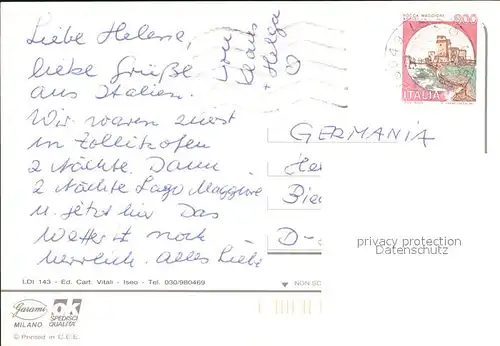 Liebe Helene,
liebe Grüße
aus Italien.
Wir waren zuerst
in Zollikofen
2 Nächte. Dann
2 Nächte Lago Maggiore
u. jetzt hier Das
Wetter ist noch
herrlich. Alles Liebe
von
Klaus
+ Helga
ROCCA MAGGIORE
800
ITALIA
GERMANIA
He
Bie
D-
privacy protection
Datenschutz
LDI 143 - Ed. Cart. Vitali - Iseo - Tel. 030/980469
NON SC
Garami
MILANO
ok
SPEDISCI
QUALITA'
© Printed in C.E.E.